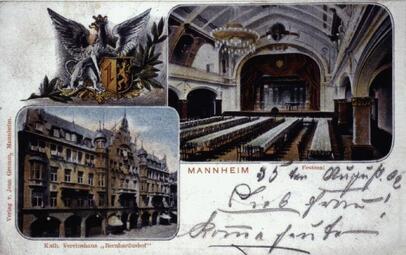 MANNHEIM
Festsaal
25 ten August 02
Lieb
Komme heute
Kath. Vereinshaus „Bernhardushof"
Verlag v. Jean Gremm, Mannheim.